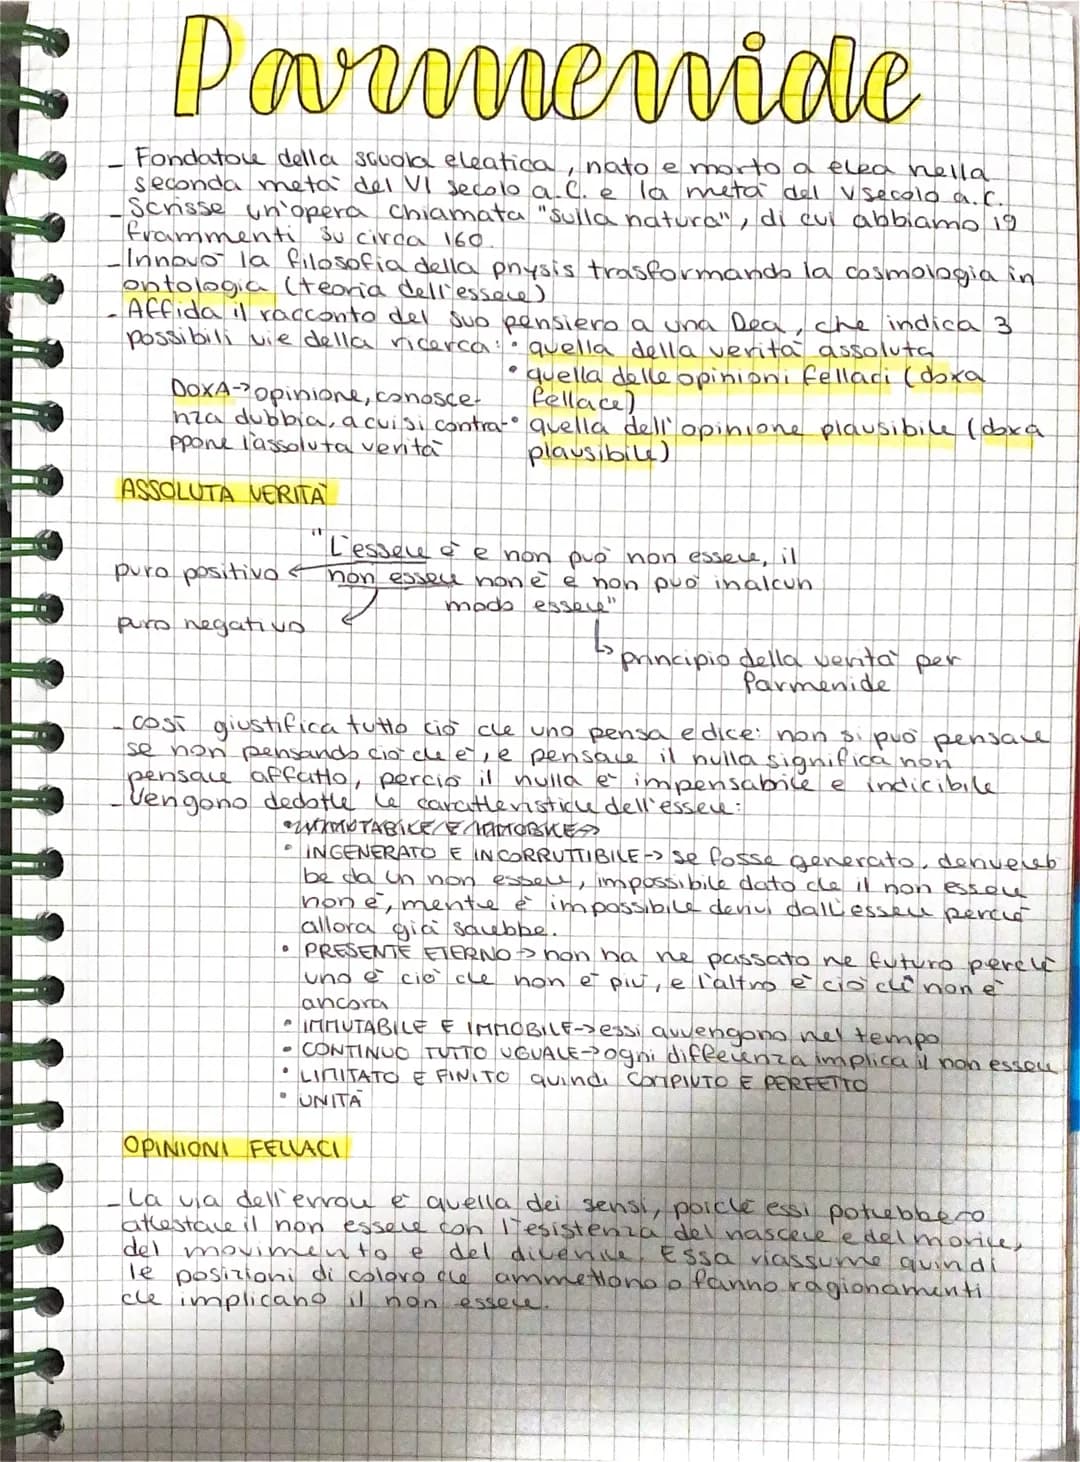 Parmenide
- Fondatore della scuola eleatica, nato e morto a elea nella
seconda metà del VI secolo a.C. e la metà del V secolo a.C.
- Scrisse un'opera chiamata "sulla natura", di cui abbiamo 19
frammenti su circa 160.
- Innovò la filosofia della physis trasformando la cosmologia in
ontologia (teoria dell'essere)
- Affida il racconto del suo pensiero a una Dea, che indica 3
possibili vie della ricerca: • quella della verità assoluta
• quella delle opinioni fellaci (doxa
fellace)
• quella dell'opinione plausibile (doxa
plausibile)
DOXA → opinione, conosce-
nza dubbia, a cui si contra-
ppone l'assoluta verità
ASSOLUTA VERITÀ
"L'essere è e non può non essere, il
puro positivo ← non essere non è e non può in alcun
modo essere"
puro negativo
↳ principio della verità per
Parmenide
- così giustifica tutto ciò che uno pensa e dice: non si può pensare
se non pensando ciò che è, e pensare il nulla significa non
pensare affatto, perciò il nulla è impensabile e indicibile
- Vengono dedotte le caratteristiche dell'essere:
• IMMUTABILE E IMMOBILE →
• INGENERATO E INCORRUTTIBILE → se fosse generato, deriverreb
be da un non essere, impossibile dato che il non essere
non è, mentre è impossibile derivi dall'essere perché
allora già sarebbe.
• PRESENTE ETERNO → non ha ne passato ne futuro perché
uno è ciò che non è più, e l'altro è ciò che non è
ancora
• IMMUTABILE E IMMOBILE → essi avvengono nel tempo
• CONTINUO TUTTO UGUALE → ogni differenza implica il non essere
• LIMITATO E FINITO quindi COMPIUTO E PERFETTO
• UNITÀ
OPINIONI FELLACI
- La via dell'errore è quella dei sensi, poiché essi potrebbero
attestare il non essere con l'esistenza del nascere e del morire,
del movimento e del divenire. Essa riassume quindi
le posizioni di coloro che ammettono o fanno ragionamenti
che implicano il non essere.